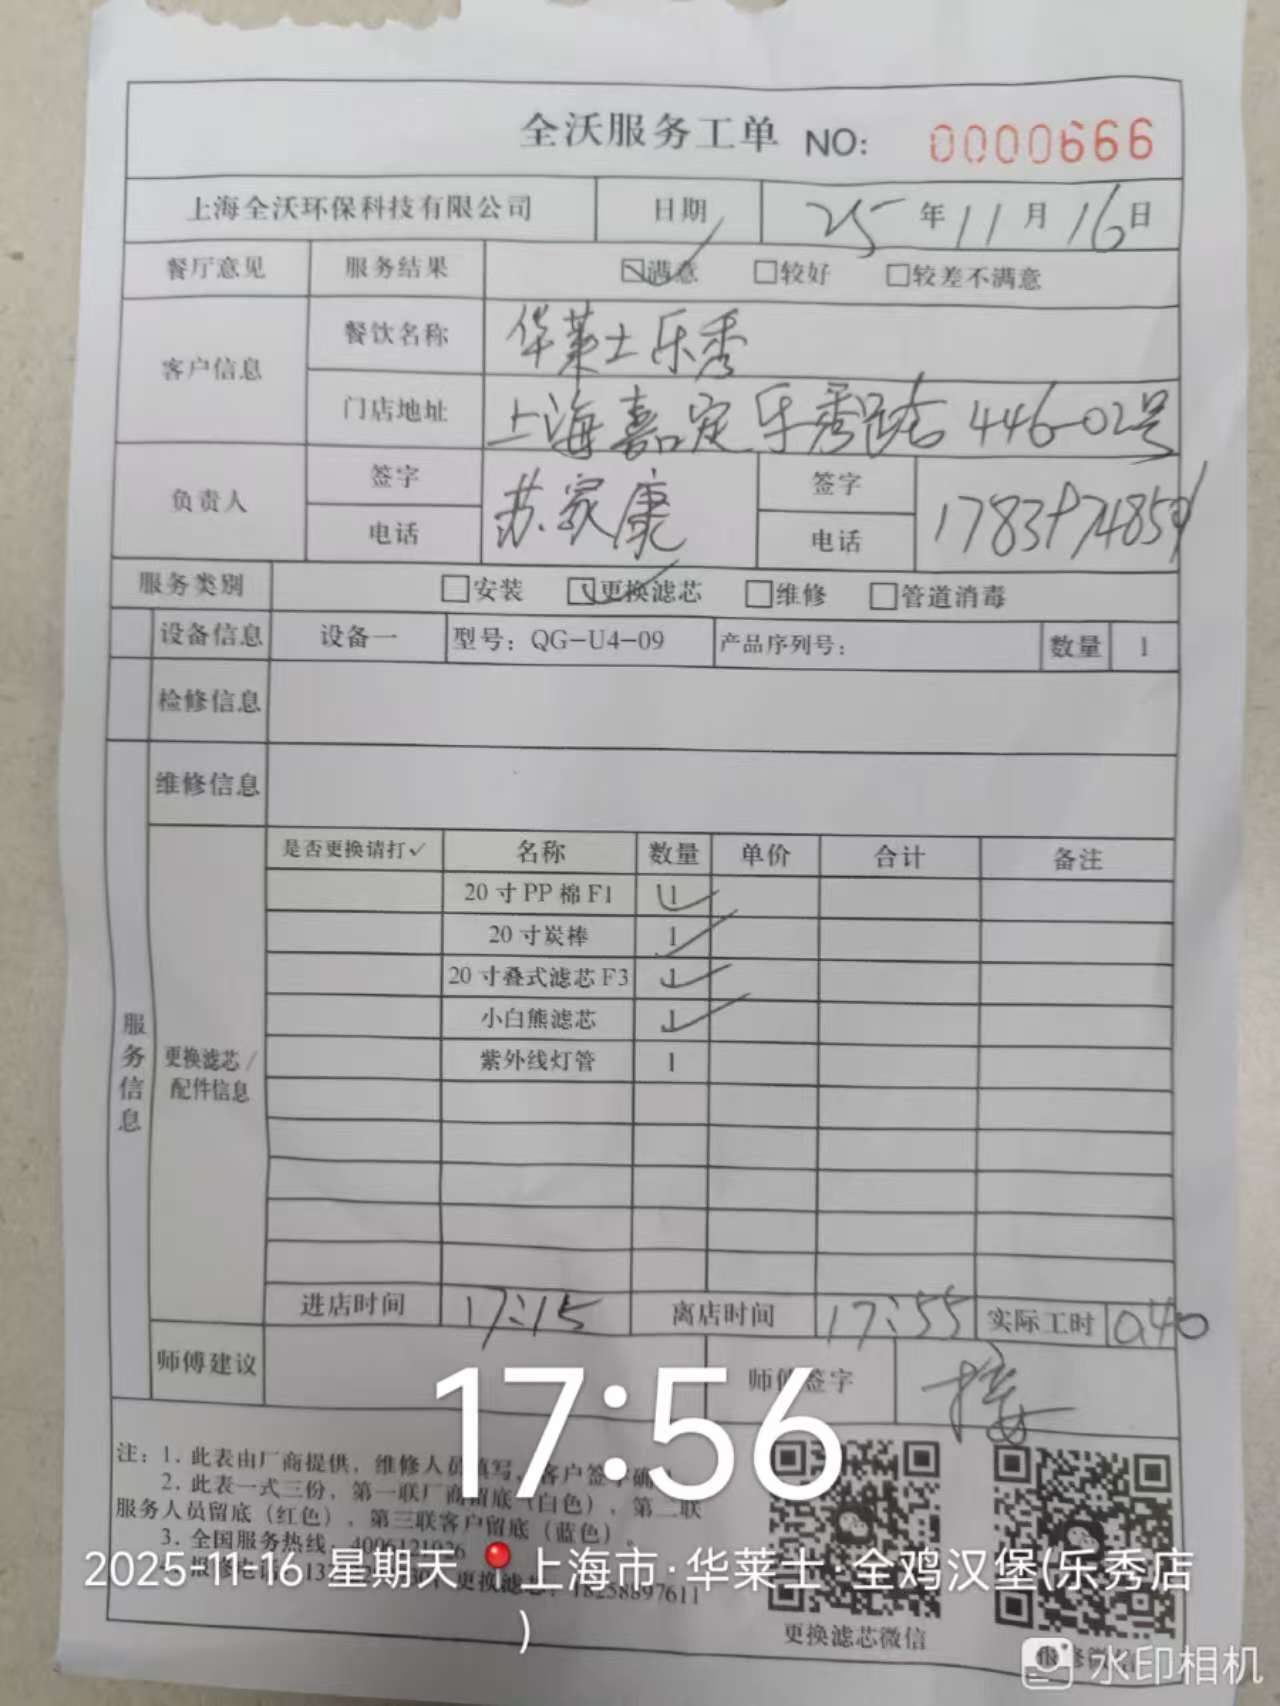 全沃服务工单 NO: 0000666
上海全沃环保科技有限公司 日期 25年11月16日
餐厅意见 服务结果 ☑满意 □较好 □较差不满意
客户信息 餐饮名称 华莱士乐秀
门店地址 上海嘉定乐秀路 446-02号
负责人 签字 苏家康 签字
电话 电话
服务类别 □安装 ☑更换滤芯 □维修 □管道消毒
设备信息 设备一 型号：QG-U4-09 产品序列号： 数量 1
检修信息
维修信息
服务信息
更换滤芯/配件信息
是否更换请打✓ 名称 数量 单价 合计 备注
20寸PP棉F1 1 ✓
20寸炭棒 1 ✓
20寸叠式滤芯F3 1 ✓
小白熊滤芯 1 ✓
紫外线灯管 1
进店时间 17:15 离店时间 17:55 实际工时 0.40
师傅建议 师傅签字
17:56
注：1. 此表由厂商提供，维修人员填写，客户签字确
2. 此表一式三份，第一联厂商留底（白色），第二联
服务人员留底（红色），第三联客户留底（蓝色）。
3. 全国服务热线：
报修电话 更换滤芯：18258897611
2025-11-16 星期天 上海市·华莱士·全鸡汉堡(乐秀店
)
更换滤芯微信
水印相机